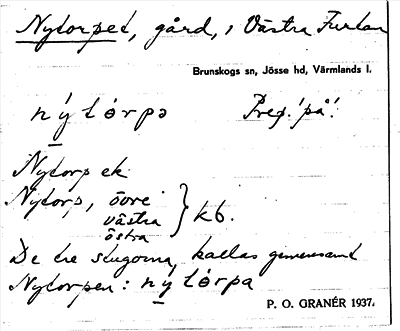 Nytorpet, gård, i Västra Furtan
Brunskogs sn, Jösse hd, Värmlands l.
ný tórpə Prep. 'på'.
Nytorp ek
Nytorp, övre
västra } kb.
östra
De tre stugorna, kallas gemensamt
Nytorpen: ný tórpa
P. O. GRANÉR 1937.